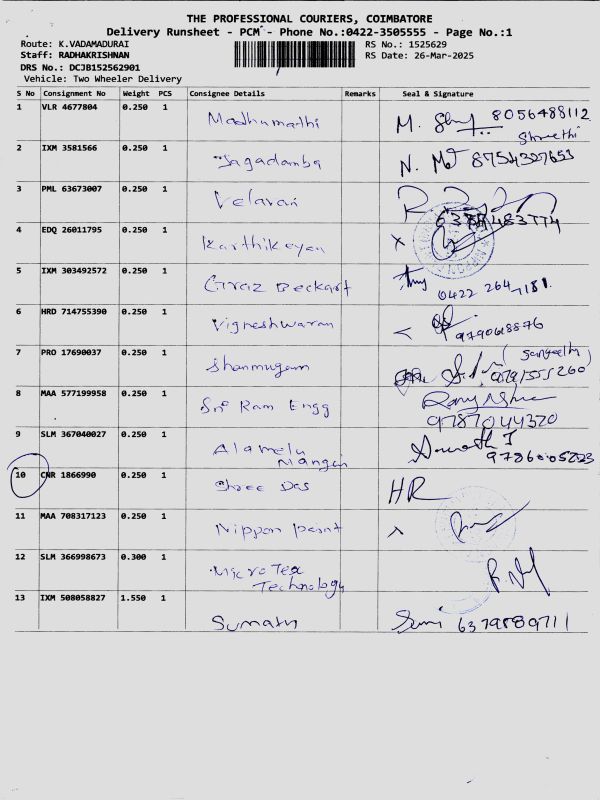 THE PROFESSIONAL COURIERS, COIMBATORE
Delivery Runsheet - PCM - Phone No.:0422-3505555 - Page No.:1
Route: K.VADAMADURAI RS No.: 1525629
Staff: RADHAKRISHNAN RS Date: 26-Mar-2025
DRS No.: DCJB152562901
Vehicle: Two Wheeler Delivery
S No Consignment No Weight PCS Consignee Details Remarks Seal & Signature
1 VLR 4677804 0.250 1 Madhumathi M. 8056488112
Shreethi
2 IXM 3581566 0.250 1 Jagadamba N. 8754327653
3 PML 63673007 0.250 1 Velavan
4 EDQ 26011795 0.250 1 Karthikeyan
5 IXM 303492572 0.250 1 Graz Beckart 0422 264 7181
6 HRD 714755390 0.250 1 Vigneshwaran
7 PRO 17690037 0.250 1 Shanmugam (Sangeetha)
8 MAA 577199958 0.250 1 Sri Ram Engg
9787044320
9 SLM 367040027 0.250 1 Alamelu
Mangin
10 CNR 1866990 0.250 1 Shree Das HR
11 MAA 708317123 0.250 1 Nippon Paint
12 SLM 366998673 0.300 1 Micro Tex
Technology
13 IXM 508058827 1.550 1 Sumathi 6379889711